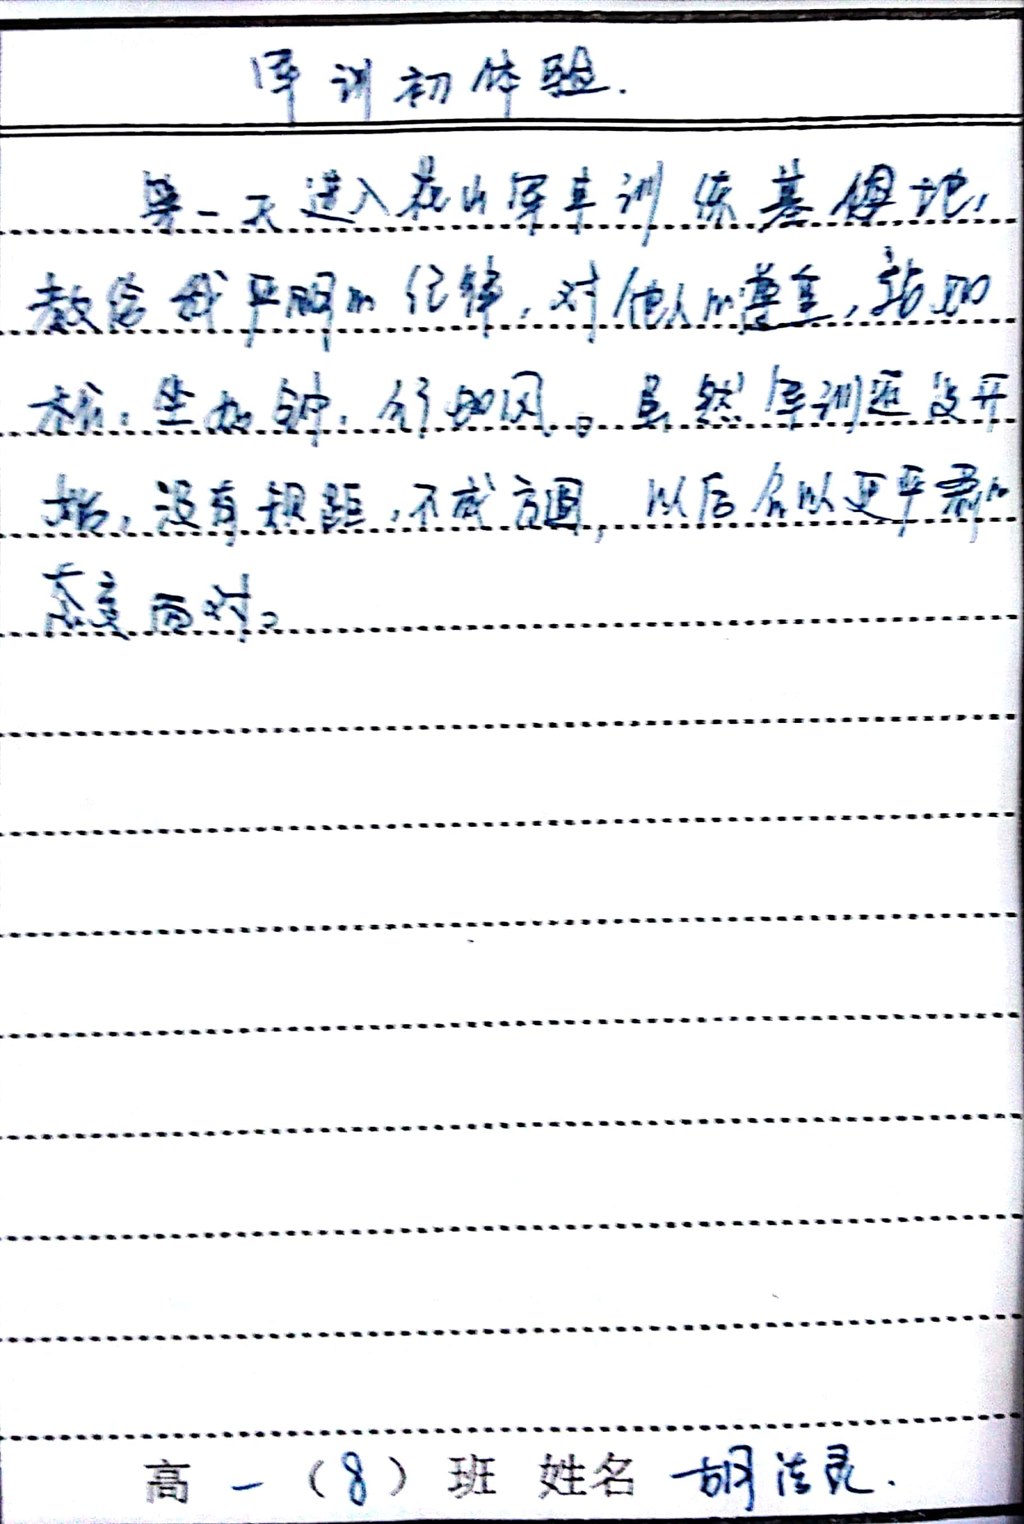 军训初体验.
第一天进入花山军事训练基地,
教给我严明的纪律,对他人的尊重,站如
松,坐如钟,行如风。虽然军训还没开
始,没有规距,不成方圆,以后会以更严肃的
态度面对。
高一(8)班 姓名 胡